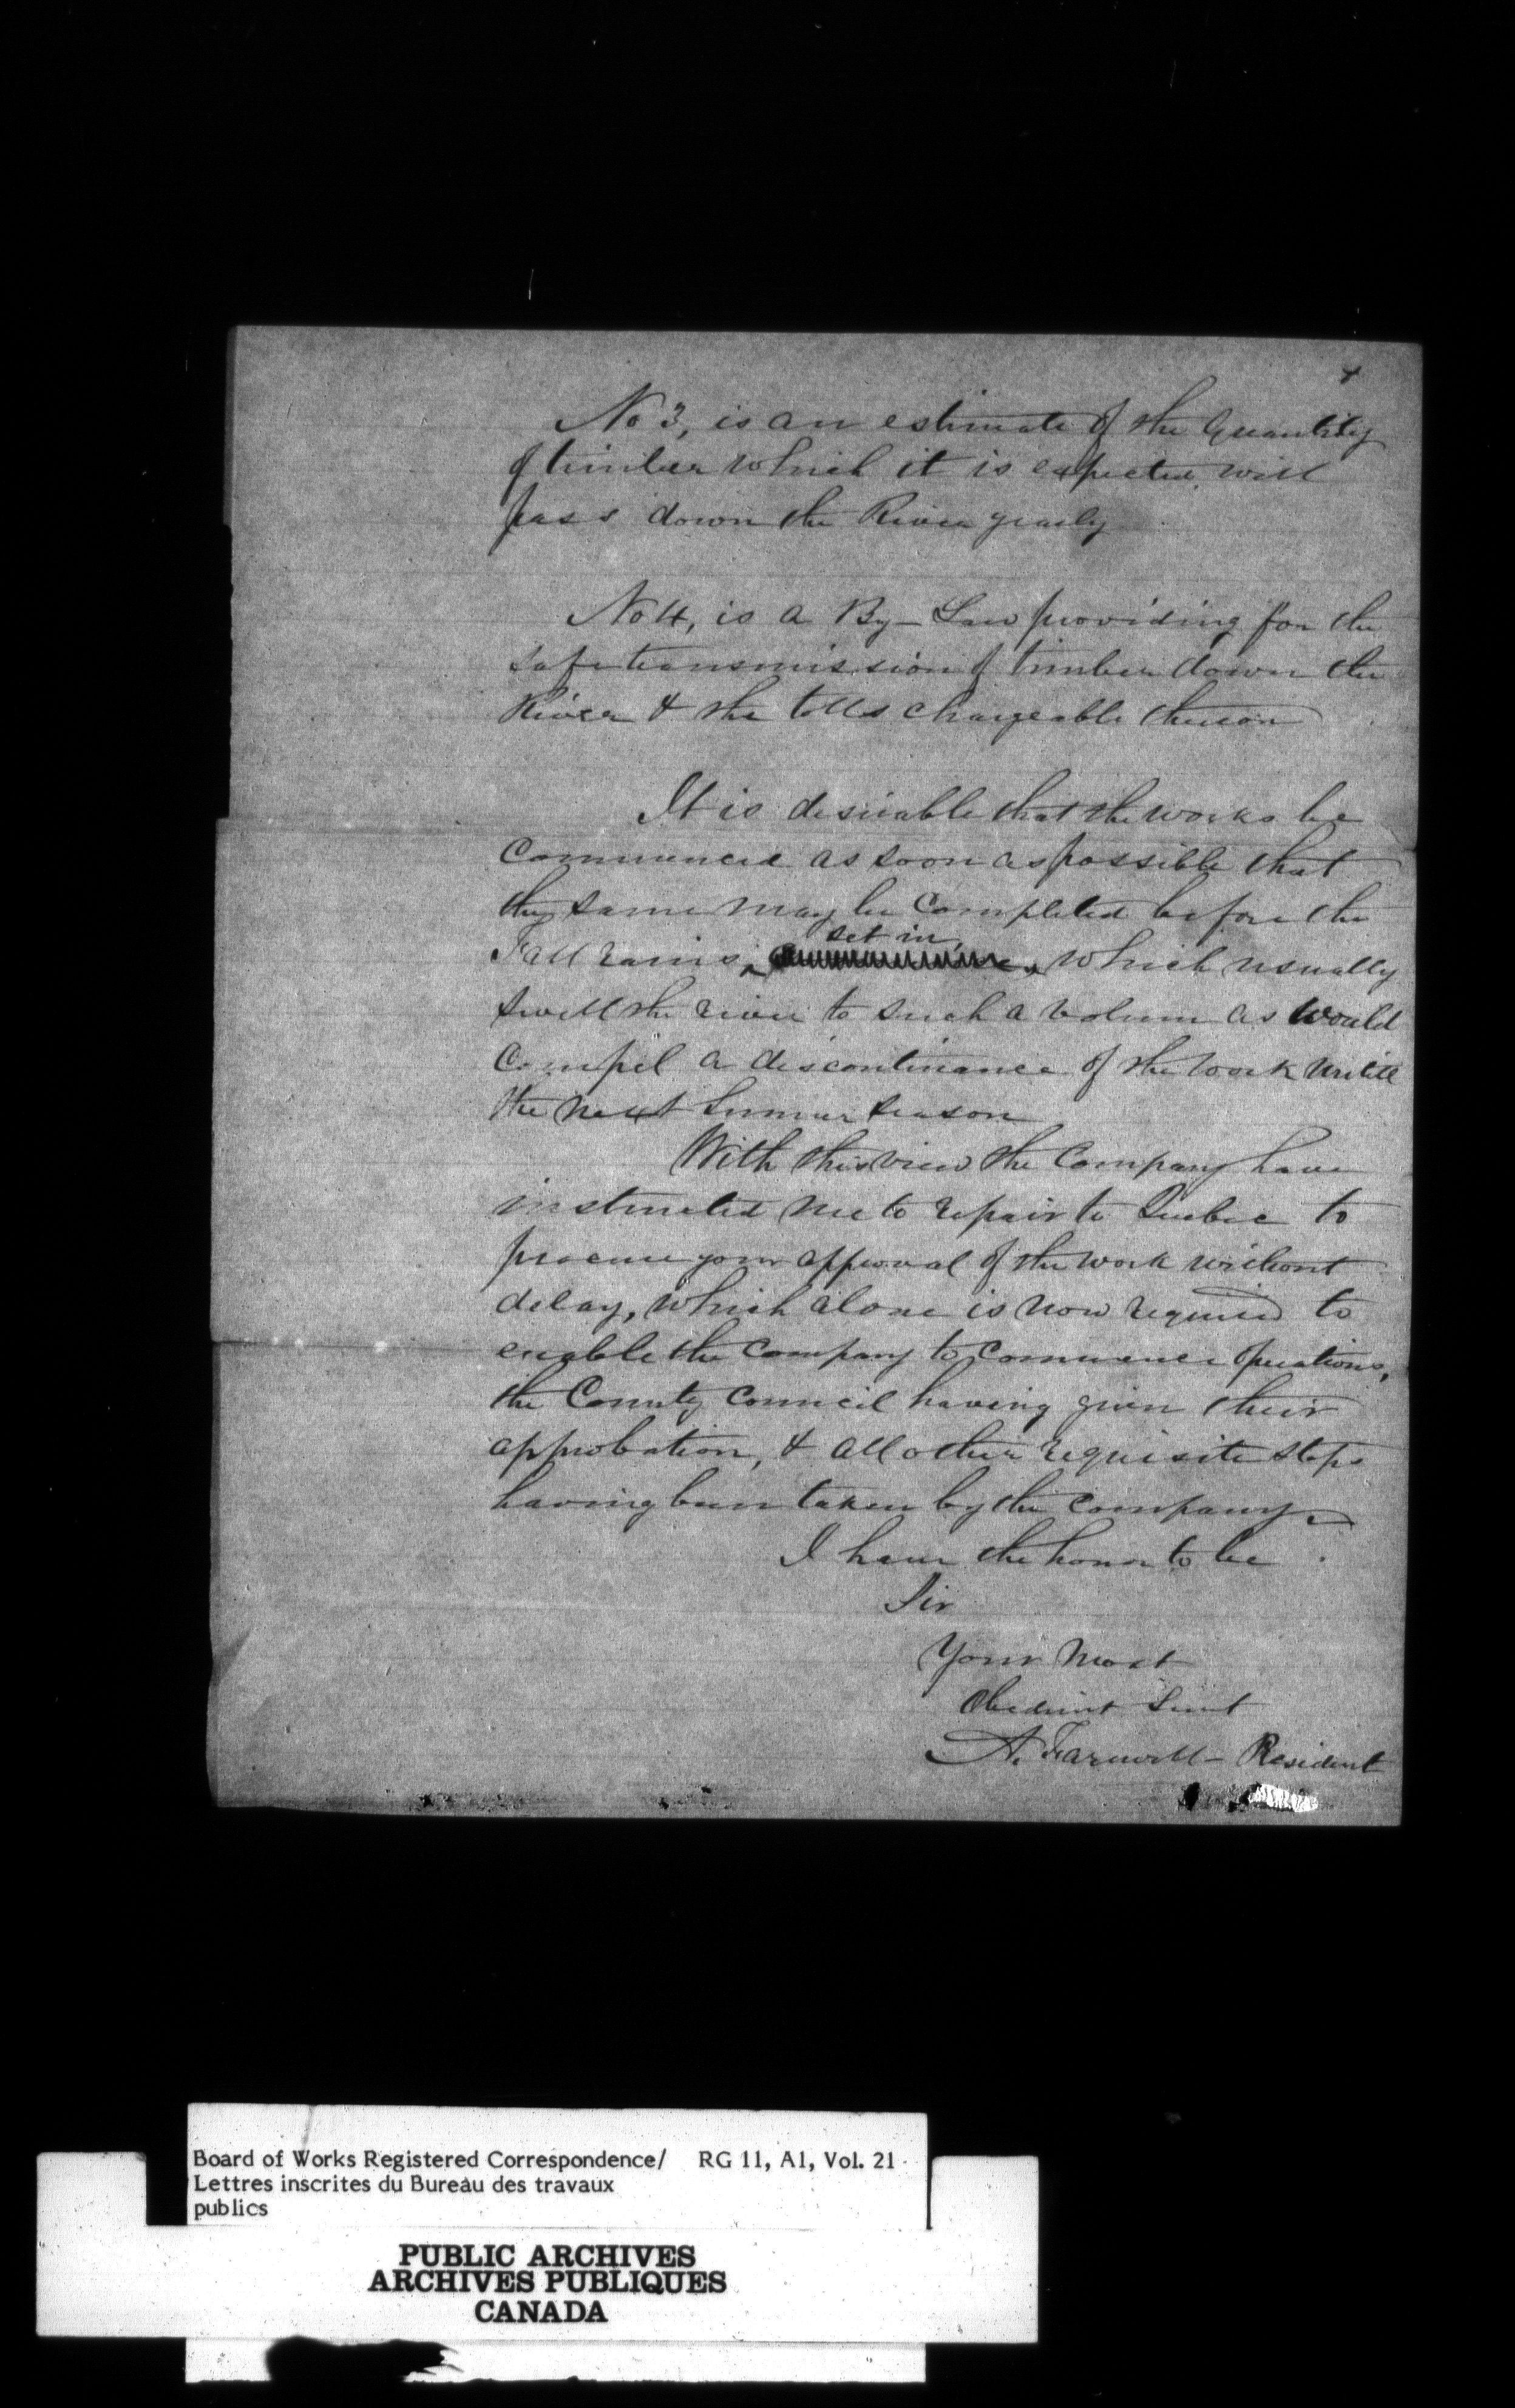 No 3, is an estimate of the Quantity
of timber which it is expected will
pass down the River yearly
No 4, is a By-Law providing for the
safe transmission of timber down the
River & the tolls chargeable thereon
It is desirable that the works be
commenced as soon as possible that
they same may be completed before the
set in,
Fall rains, which usually
swell the river to such a volum as would
compel a discontinance of the work untill
the next Summer season
With this view the Company have
instructed me to repair to Quebec to
procure your approval of the work without
delay, which alone is now required to
enable the Company to commence operations,
the County Council having given their
approbation, & all other requisite steps
having been taken by the Company
I have the honor to be
Sir
Your most
Obedient Servt
A. Farwell - President
Board of Works Registered Correspondence/ RG 11, A1, Vol. 21
Lettres inscrites du Bureau des travaux
publics
PUBLIC ARCHIVES
ARCHIVES PUBLIQUES
CANADA